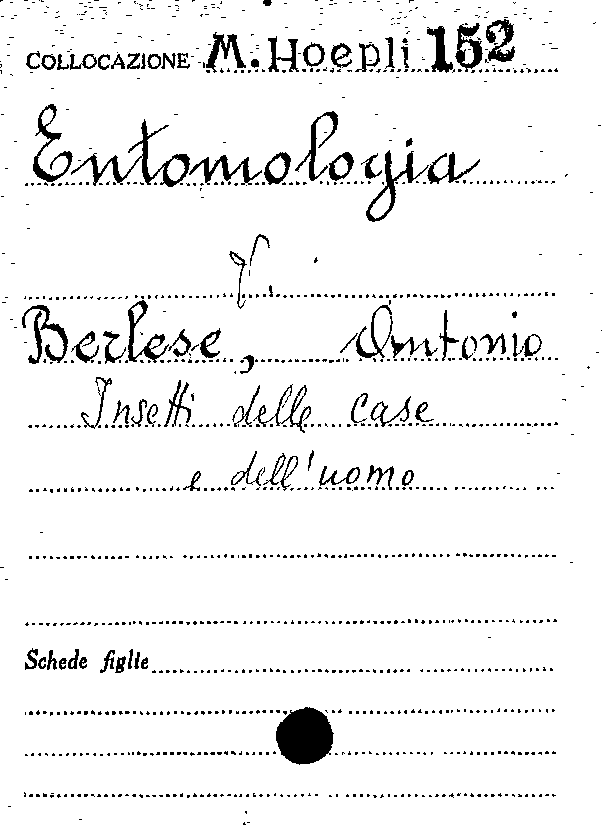 COLLOCAZIONE M. Hoepli 152
Entomologia
V.
Berlese, Antonio
Insetti delle case
e dell'uomo
Schede figlie